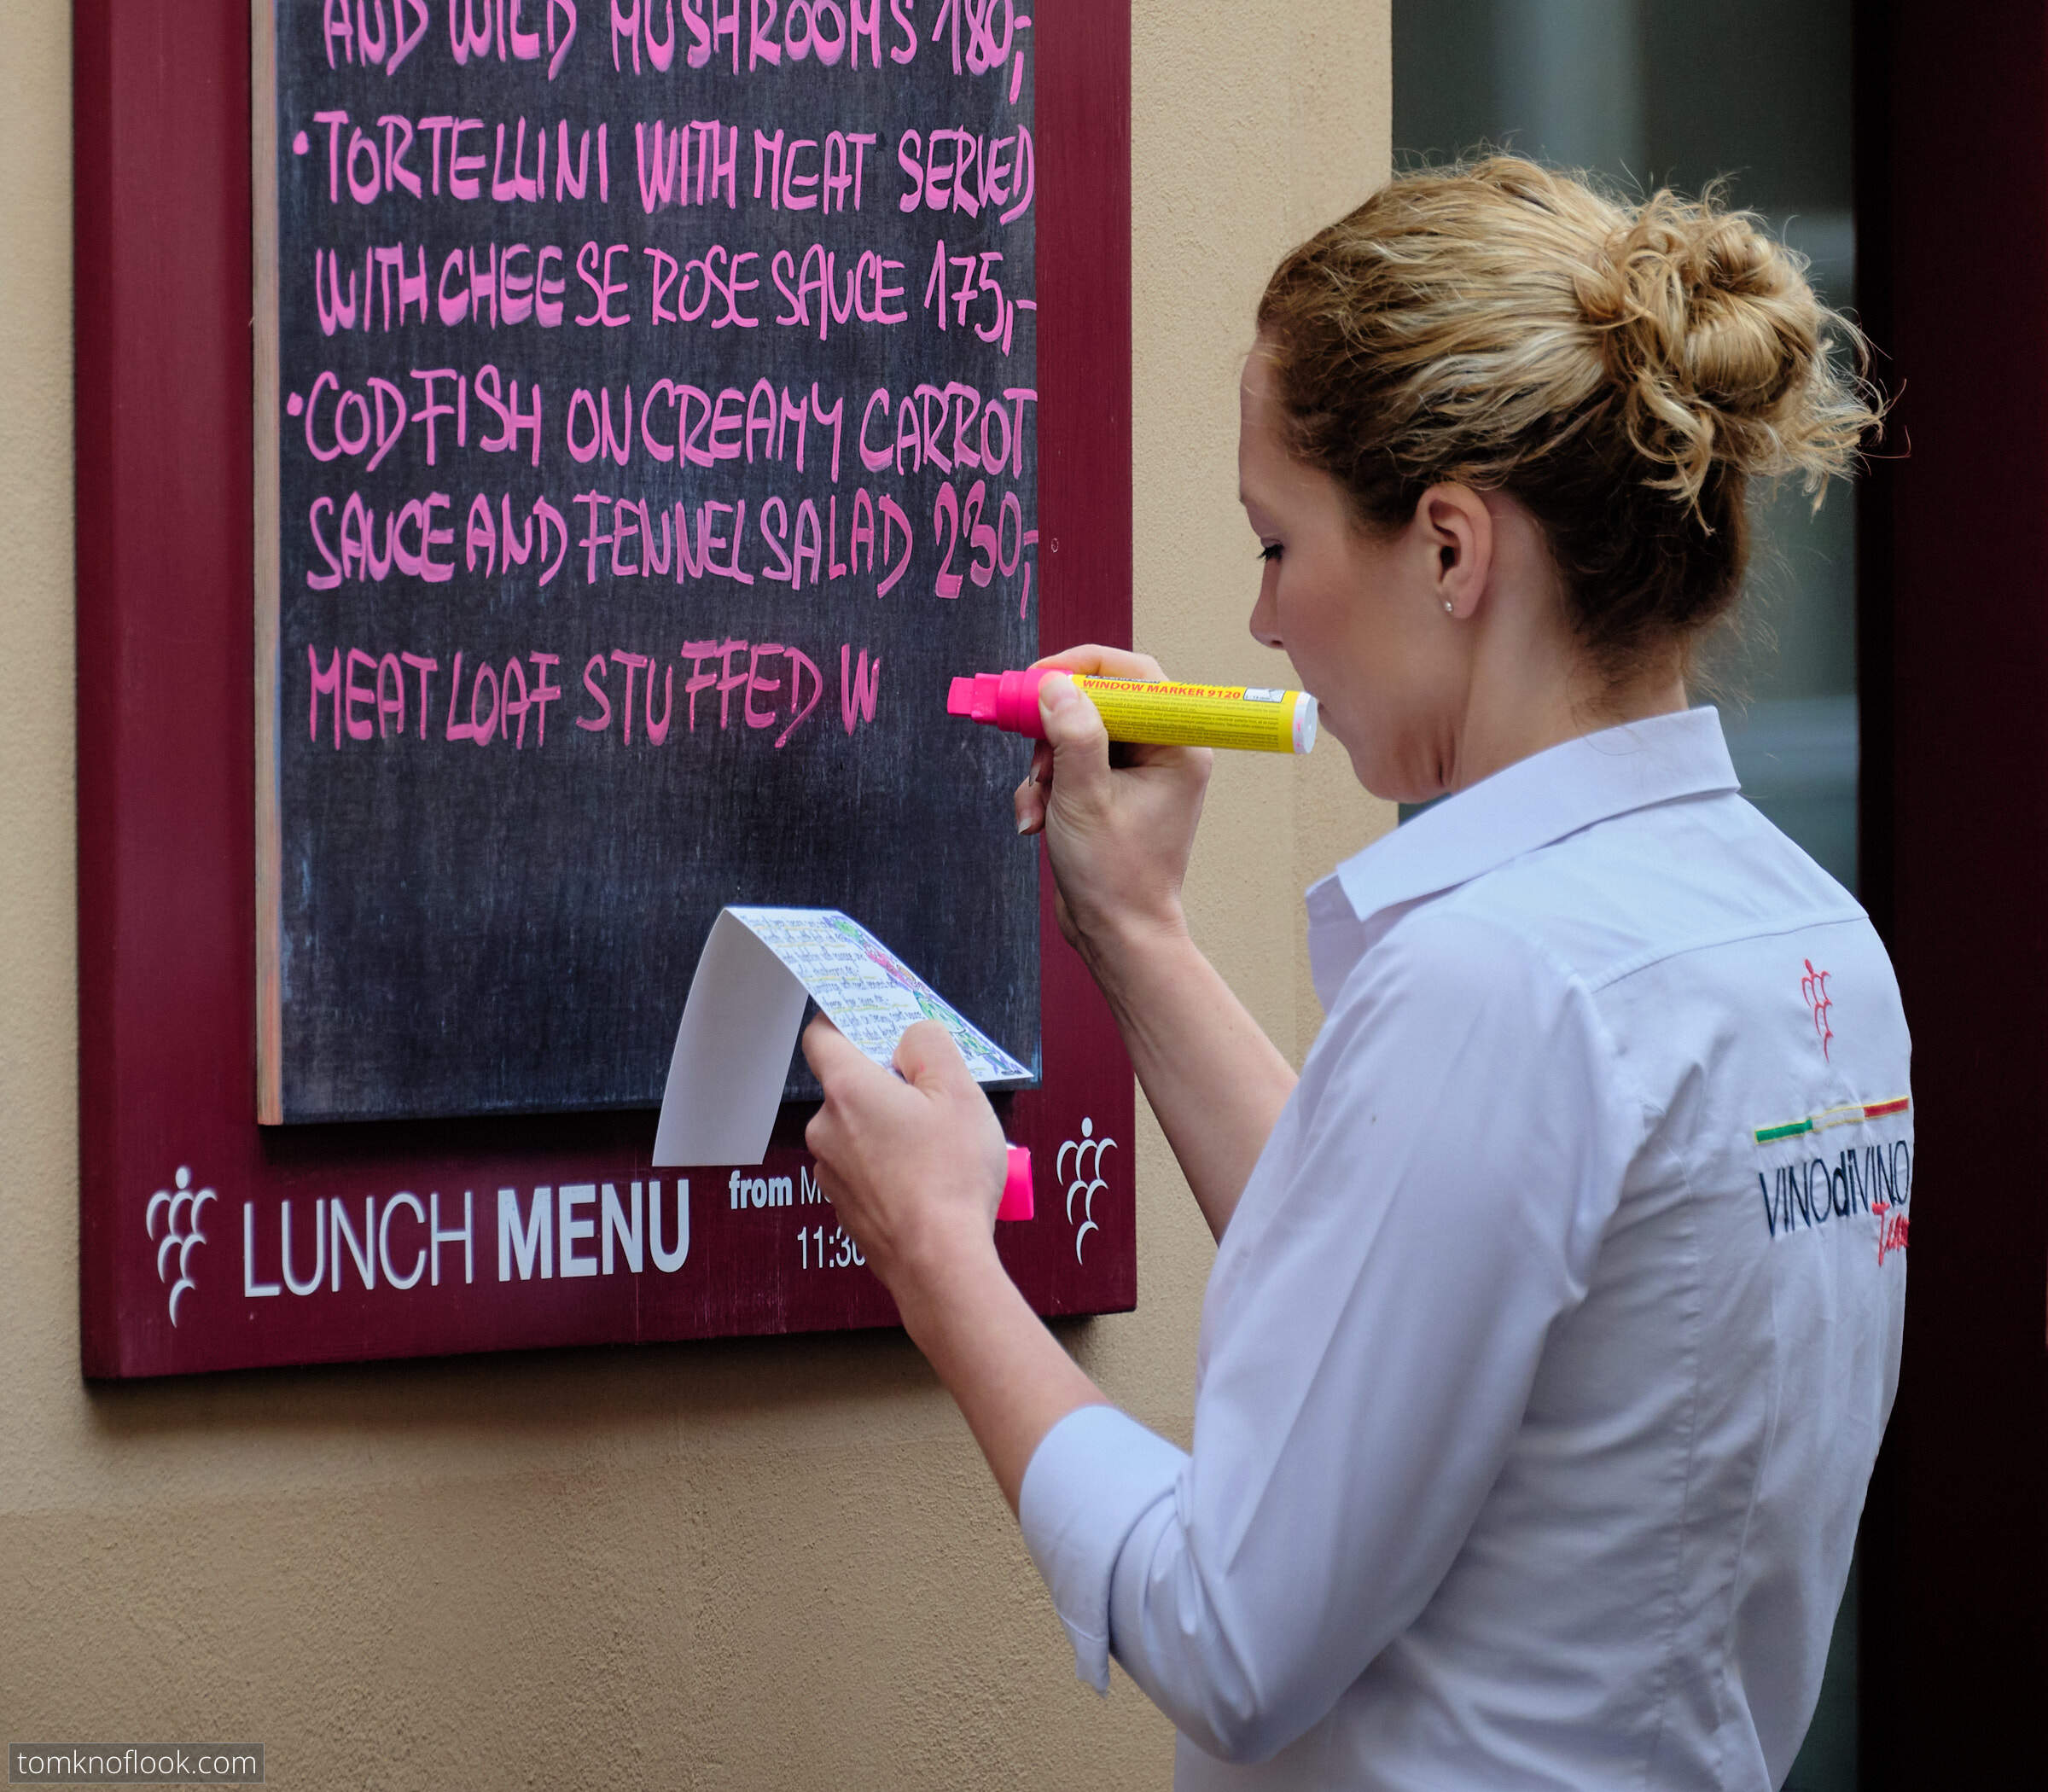 AND WILD MUSHROOMS 180,-
•TORTELLINI WITH MEAT SERVED
WITH CHEESE ROSE SAUCE 175,-
•CODFISH ON CREAMY CARROT
SAUCE AND FENNEL SALAD 230,-
MEATLOAF STUFFED W
WINDOW MARKER 9120
LUNCH MENU
from
11:30
VINOdiVINO
Team
tomknoflook.com